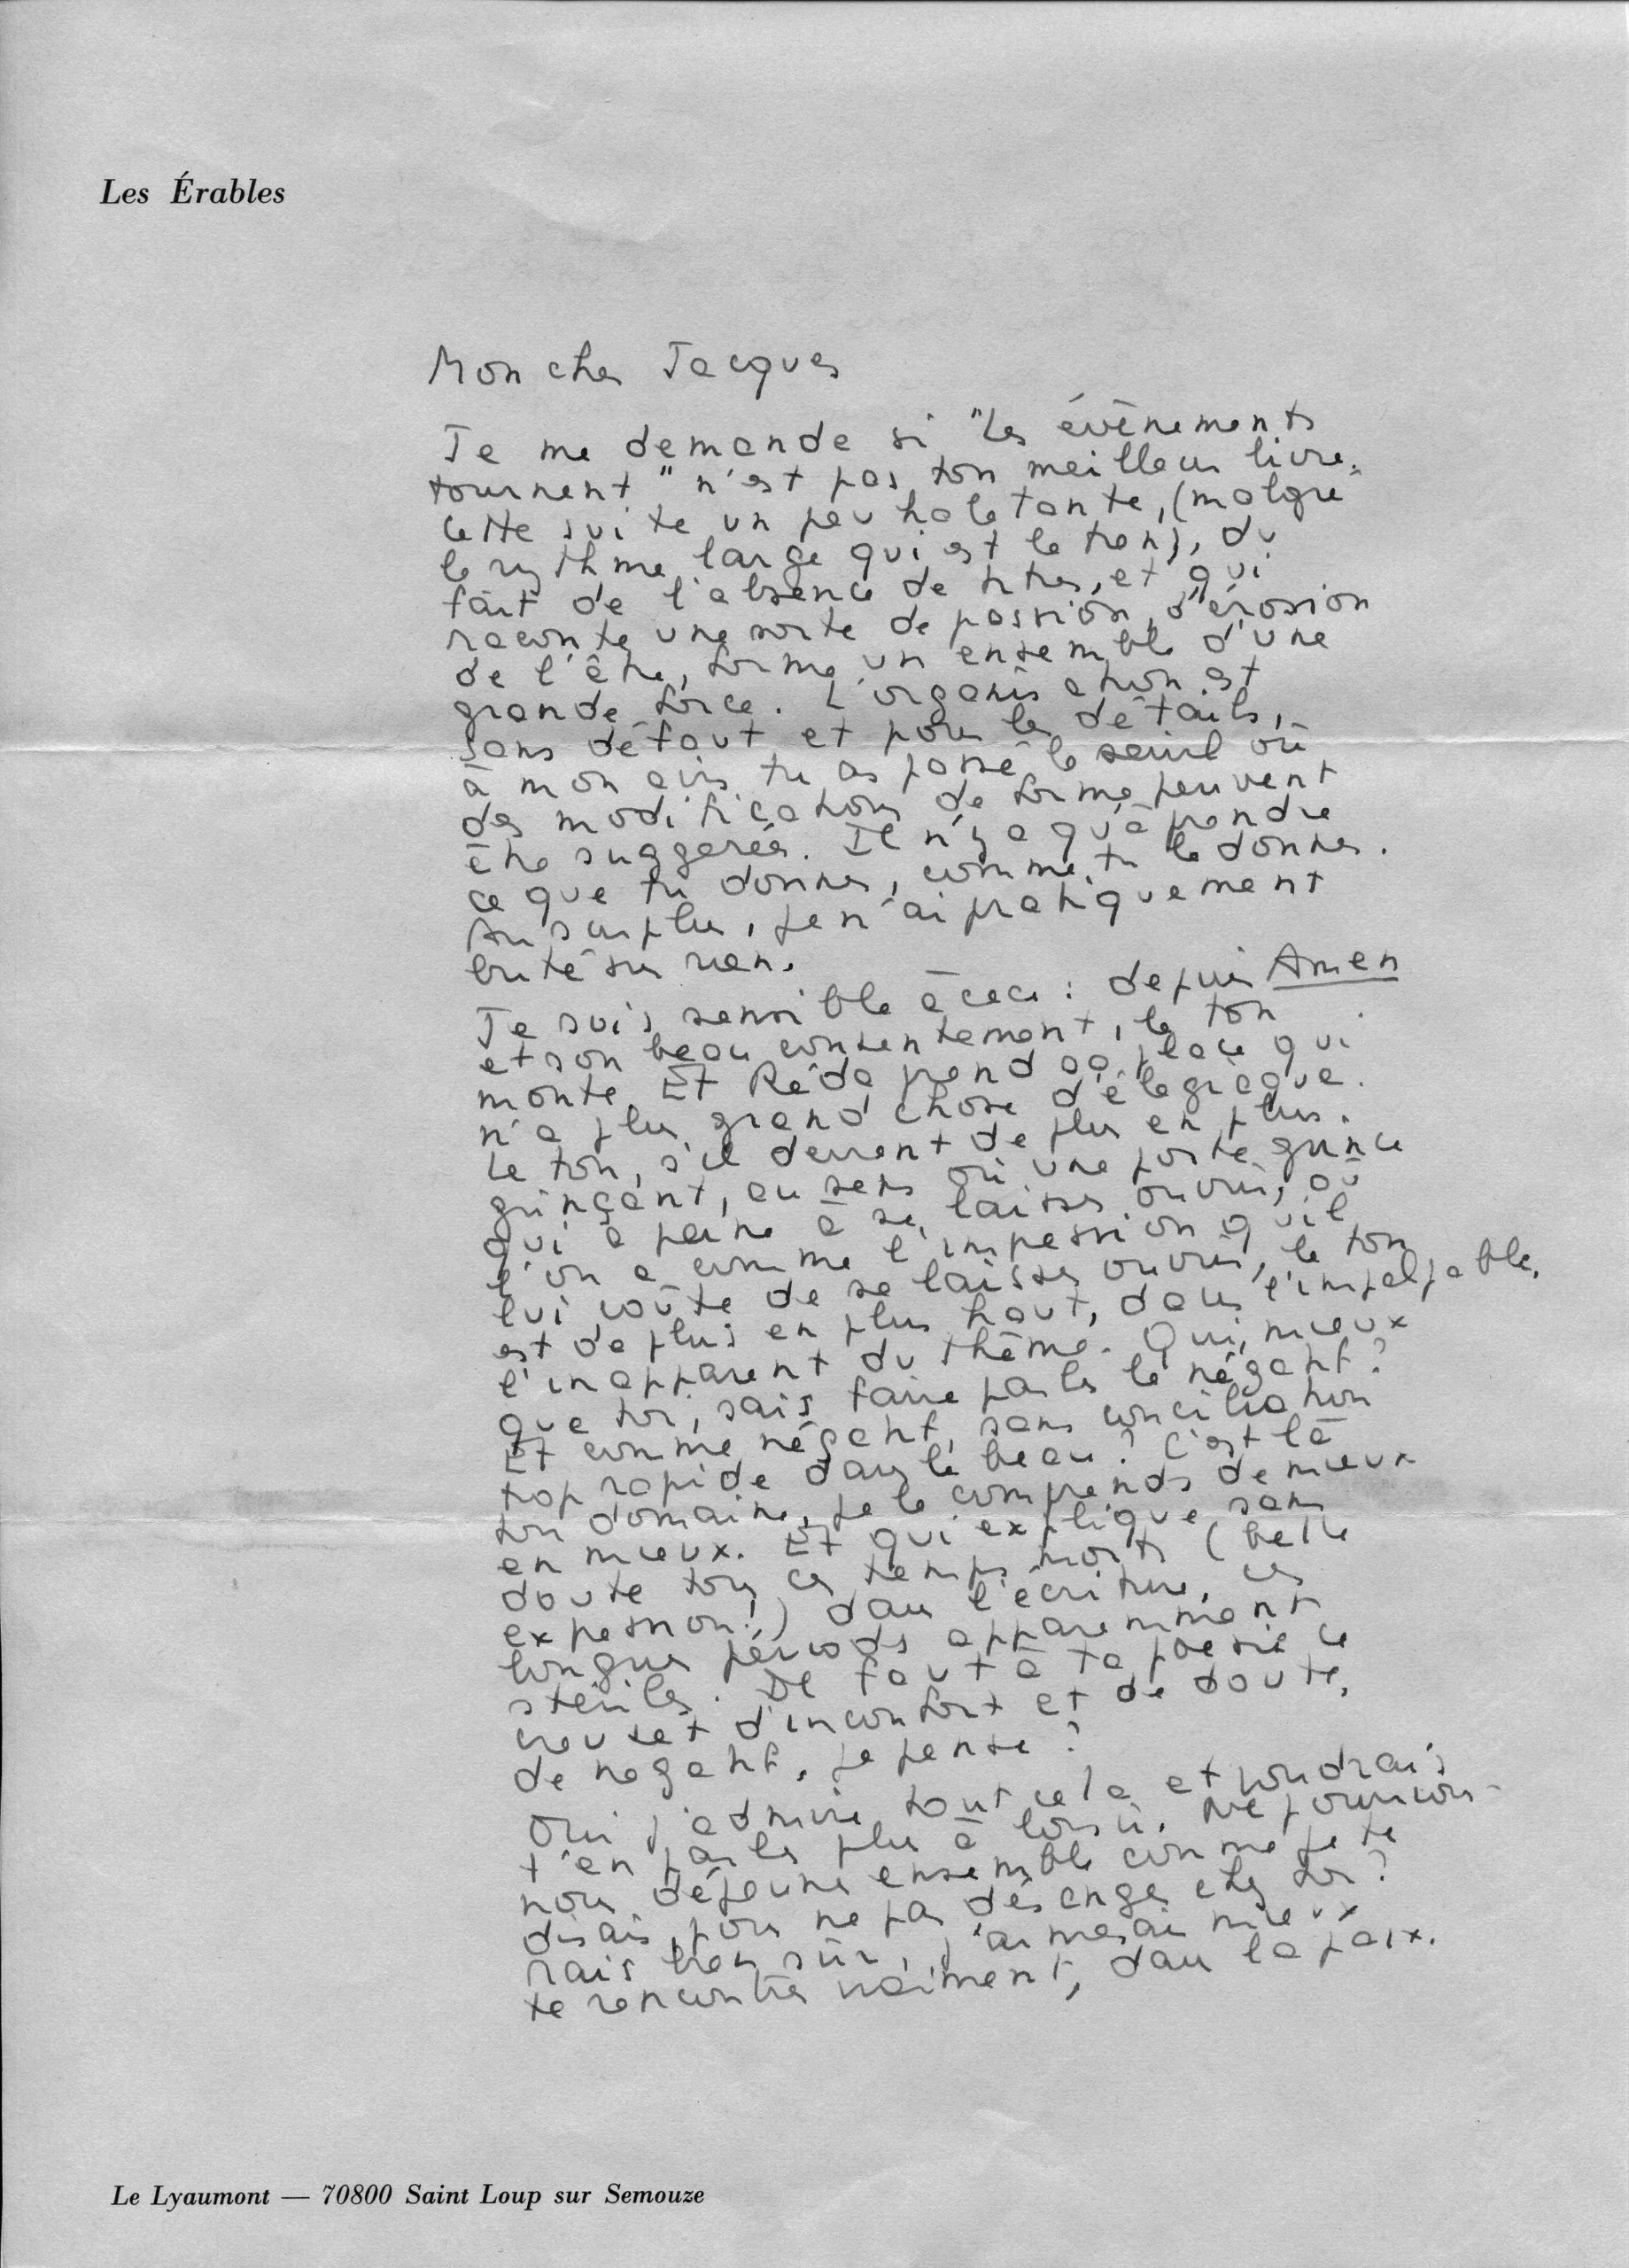 Les Érables
Mon cher Jacques
Je me demande si "Les évènements
tournent" n'est pas ton meilleur livre.
Cette suite un peu haletante, (malgré
le rythme large qui est le tien), du
fait de l'absence de titres, et qui
raconte une sorte de passion, d'érosion
de l'être, forme un ensemble d'une
grande force. L'organisation est
sans défaut et pour les détails,
à mon avis, tu as passé le seuil où
des modifications de forme peuvent
être suggérées. Il n'y a qu'à prendre
ce que tu donnes, comme tu le donnes.
Au surplus, je n'ai pratiquement
buté sur rien.
Je suis sensible à ceci : depuis Amen
et son beau consentement, le ton
monte. Et Réda prend sa place qui
n'a plus grand chose d'élégiaque.
Le ton, s'il devient de plus en plus
grinçant, au sens où une porte grince
qui a peine à se laisser ouvrir, où
l'on a comme l'impression qu'il
lui coûte de se laisser ouvrir, le ton
est de plus en plus haut, dans l'impalpable,
l'inapparent du thème. Qui, mieux
que toi, sais faire parler le négatif?
Et comme négatif, sans conciliation
trop rapide dans le beau? C'est là
ton domaine, je le comprends de mieux
en mieux. Et qui explique sans
doute tous ces temps morts (belle
expression!) dans l'écriture, ces
longues périods apparemment
stériles. Il faut à ta poésie ce
creuset d'inconfort et de doute,
de negatif, je pense?
Oui j'admire tout cela et voudrais
t'en parler plus à loisir. Ne pourrions-
nous déjeuner ensemble comme je te
disais, pour ne pas déranger chez toi?
Mais bien sûr, j'aimerai mieux
te rencontrer vraiment, dans la paix.
Le Lyaumont — 70800 Saint Loup sur Semouze